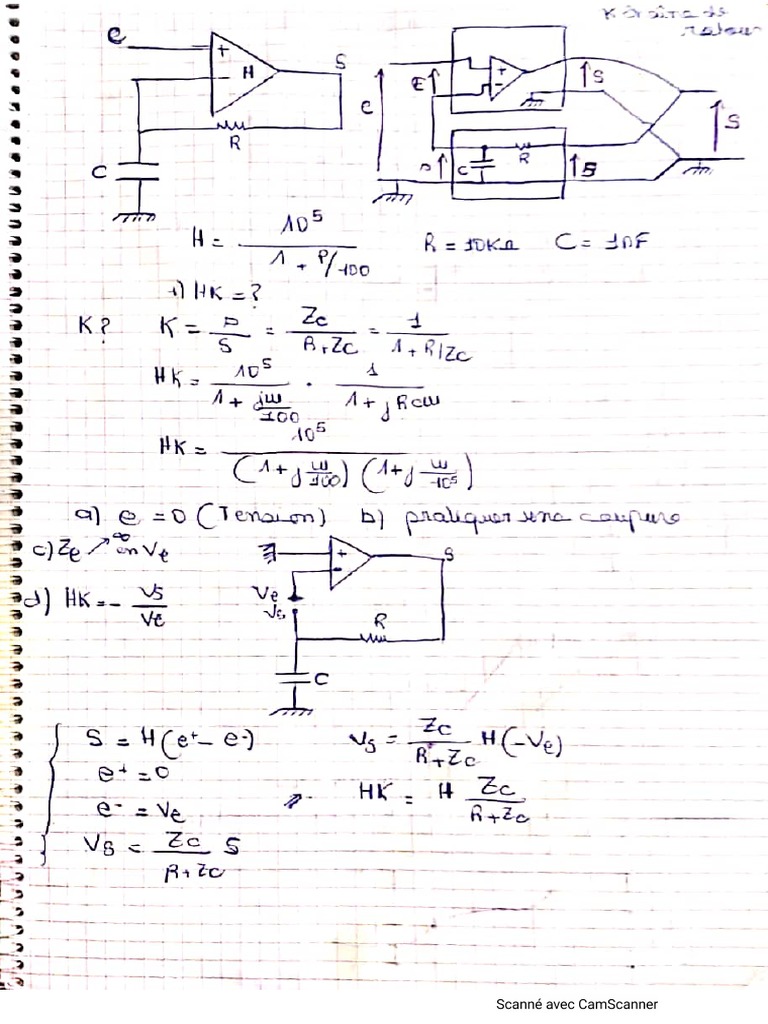 K chaîne de
retour
e
+
-
H
S
R
C
e
E
+
-
S
S
R
C
S
H = 10^5 / (1 + P/100)    R = 10KΩ    C = 1nF
1) HK = ?
K?    K = / S = Zc / (R+Zc) = 1 / (1+R/Zc)
HK = 10^5 / (1 + jω/100) . 1 / (1 + jRCω)
HK = 10^5 / ((1 + j ω/100) (1 + j ω/10^5))
a) e = 0 (Tension)    b) pratiquer une coupure
c) Ze ↗ ∞ en Ve
d) HK = - Vs/Ve
+
-
S
Ve
Vs
R
C
S = H(e+ - e-)    Vs = Zc / (R+Zc) H(-Ve)
e+ = 0
e- = Ve    ⇒ HK = H Zc / (R+Zc)
Vs = Zc / (R+Zc) S
Scanné avec CamScanner